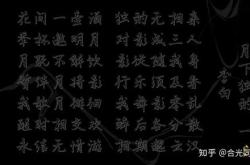 花间一壶酒 独酌无相亲
举杯邀明月 对影成三人
月既不解饮 影徒随我身
暂伴月将影 行乐须及春
我歌月徘徊 我舞影零乱
醒时相交欢 醉后各分散
永结无情游 相期邈云汉
李白
知乎 @合光